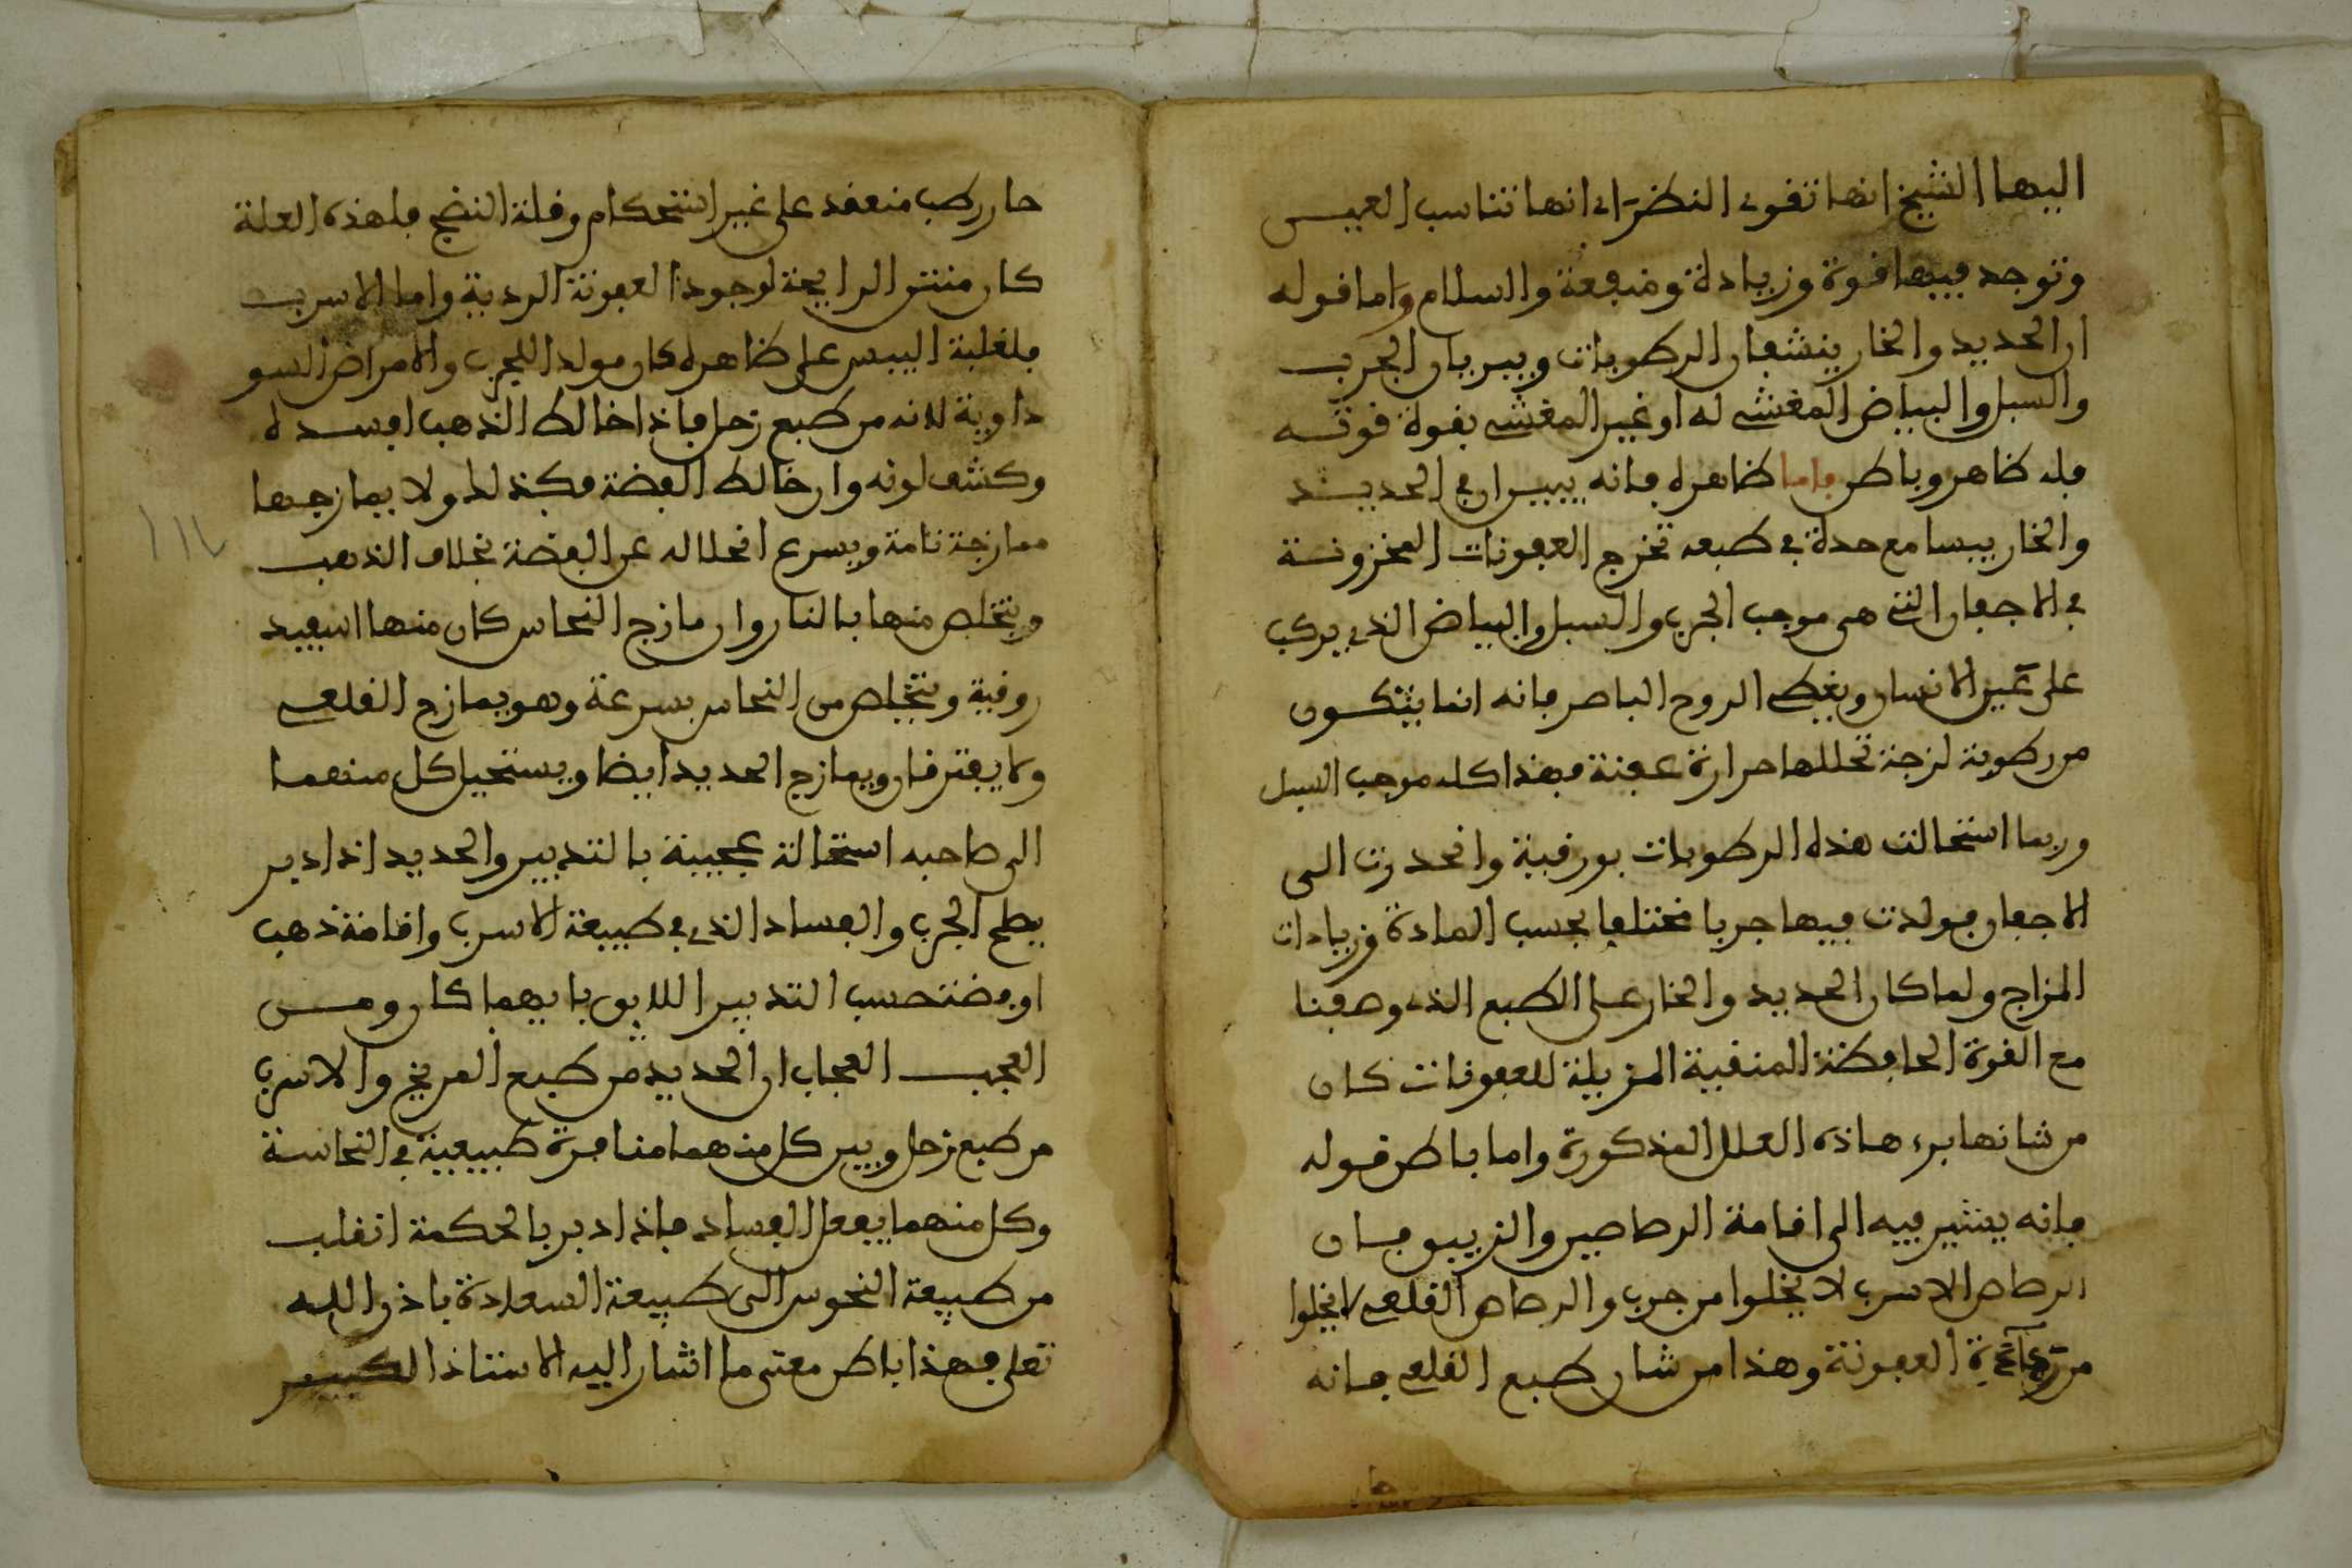 اليها الشيخ انها تقوى النظر اى انها تناسب العين
وتوجد فيها قوة وزيادة ومنفعة والسلام واما قوله
ان الحديد والخار ينشفان الرطوبات ويبريان الجرب
والسبل والبياض المغشى له او غير المغشى بقوة قوته
فله ظاهر وباطن فاما ظاهره فانه يبين ان في الحديد
والخار يبسا مع حدة في طبعه تخرج العفونات المخزونة
في الاجفان التى هى موجب الجرب والسبل والبياض الذى يركب
على عين الانسان ويغطى الروح الباصر فانه انما يتكون
من رطوبة لزجة تحللها حرارة عفنة فهذا كله موجب السبل
وربما استحالت هذه الرطوبات بورقية وانحدرت الى
الاجفان فولدت فيها جربا مختلفا بحسب المادة وزيادات
المزاج ولما كان الحديد والخار على الطبع الذى وصفنا
مع القوة الحافظة المنقية المزيلة للعفونات كان
من شانها برء هاذه العلل المذكورة واما باطن قوله
فانه يشير فيه الى اقامة الرصاصين والزيبق فان
الرصاص الاسرب لا يخلوا من جرب والرصاص القلعى لا يخلوا
من العفونة وهذا من شان طبع القلعى فانه
حار رطب منعقد على غير استحكام وقلة النضج فلهذه العلة
كان منتن الرايحة لوجود العفونة الردية واما الاسرب
فلغلبة اليبس على ظاهره كان مولدا للجرب والامراض السو
داوية لانه من طبع زحل فاذا خالط الذهب افسده
وكشف لونه وان خالط الفضة فكذلك ولا يمازجها
ممازجة تامة ويسرع انحلاله عن الفضة بخلاف الذهب
ويتخلص منها بالنار وان مازج النحاس كان منها اسفيد
روفية ويتخلص من النحاس بسرعة وهو يمازج القلعى
ولا يفترقان ويمازج الحديد ايضا ويستحيل كل منهما
الى صاحبه استحالة عجيبة بالتدبير والحديد اذا دبر
يصلح الجرب والفساد الذى في طبيعة الاسرب واقامة ذهب
او فضة حسب التدبير اللايق بايهما كان ومن
العجب العجاب ان الحديد من طبع المريخ والاسرب
من طبع زحل وبين كل منهما منافرة طبيعية في النحاسة
وكل منهما يفعل الفساد فاذا دبر بالحكمة انقلب
من طبيعة النحوس الى طبيعة السعادة باذن الله
تعلى فهذا باطن معنى ما اشار اليه الاستاذ الكبير
١١٢